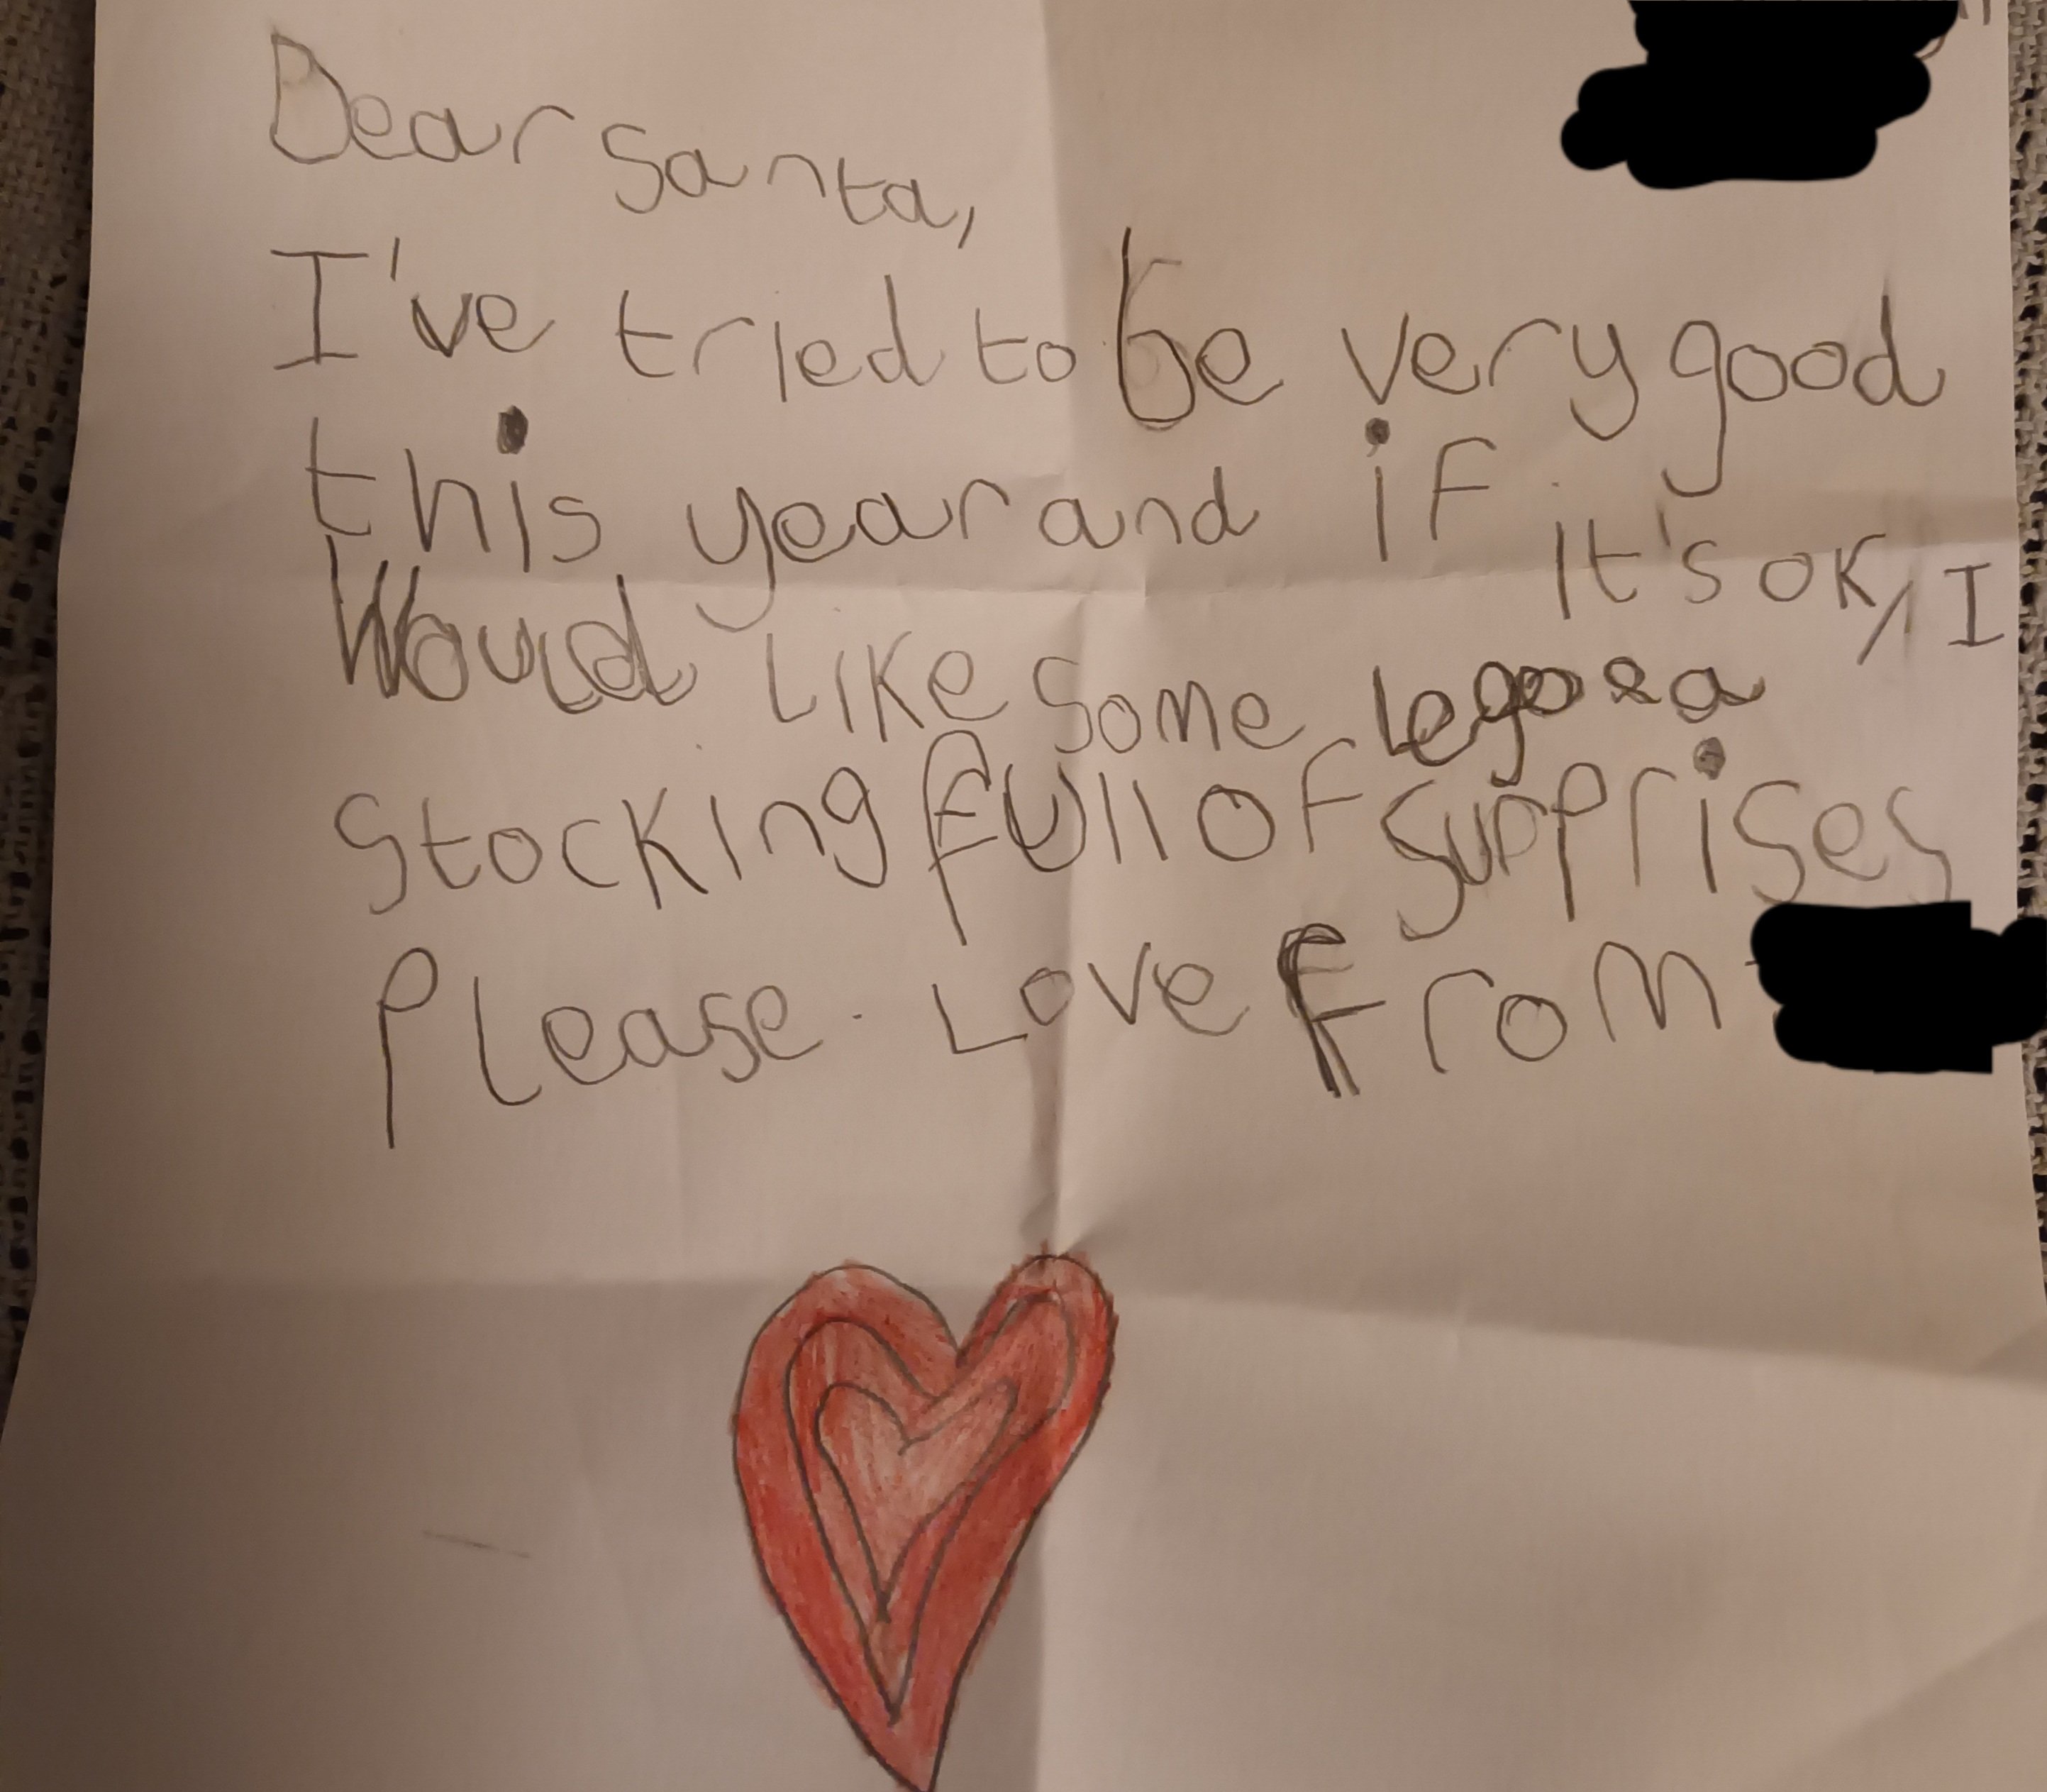 Dear Santa,
I've tried to be very good
this year and if it's ok, I
Would like some lego & a
Stocking full of surprises
Please. Love From